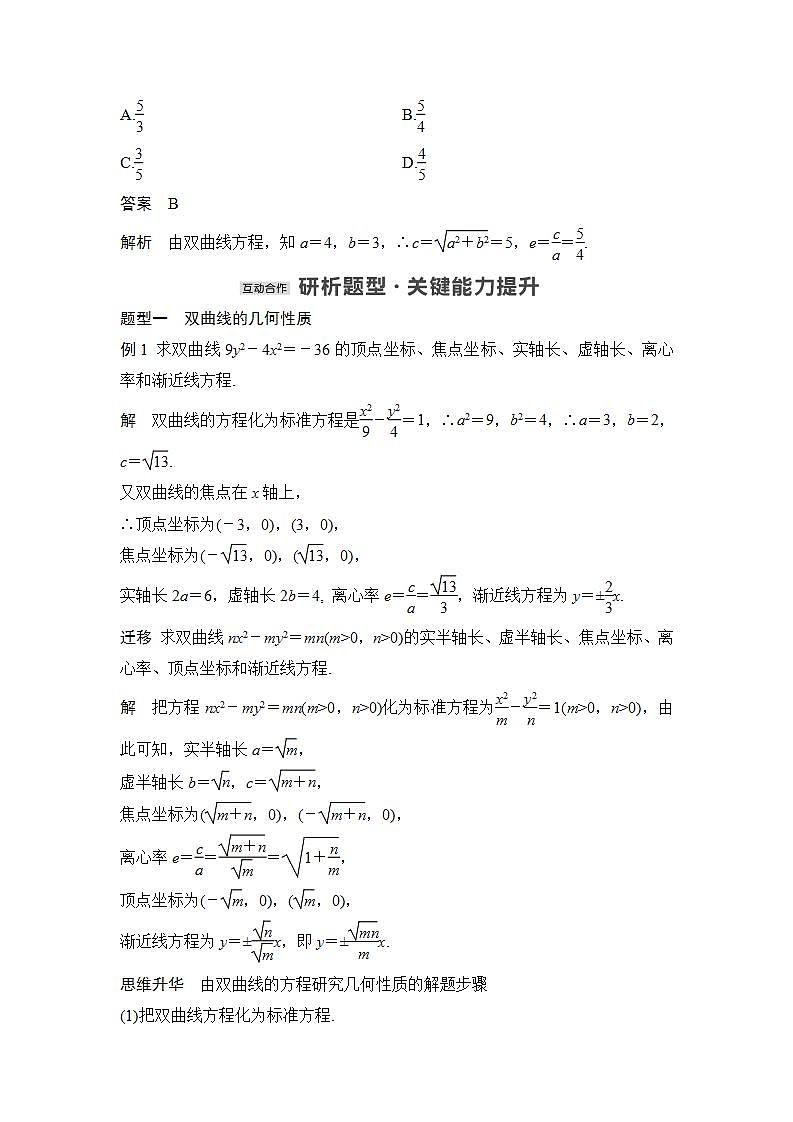 A.5/3 B.5/4
C.3/5 D.4/5
答案 B
解析 由双曲线方程，知 a＝4，b＝3，∴c＝√(a2＋b2)＝5，e＝c/a＝5/4.
互动合作 研析题型·关键能力提升
题型一 双曲线的几何性质
例 1 求双曲线 9y2－4x2＝－36 的顶点坐标、焦点坐标、实轴长、虚轴长、离心
率和渐近线方程.
解 双曲线的方程化为标准方程是x2/9－y2/4＝1，∴a2＝9，b2＝4，∴a＝3，b＝2，
c＝√13.
又双曲线的焦点在 x 轴上，
∴顶点坐标为(－3，0)，(3，0)，
焦点坐标为(－√13，0)，(√13，0)，
实轴长 2a＝6，虚轴长 2b＝4, 离心率 e＝c/a＝√13/3，渐近线方程为 y＝±2/3x.
迁移 求双曲线 nx2－my2＝mn(m>0，n>0)的实半轴长、虚半轴长、焦点坐标、离
心率、顶点坐标和渐近线方程.
解 把方程 nx2－my2＝mn(m>0，n>0)化为标准方程为x2/m－y2/n＝1(m>0，n>0)，由
此可知，实半轴长 a＝√m，
虚半轴长 b＝√n，c＝√(m＋n)，
焦点坐标为(√(m＋n)，0)，(－√(m＋n)，0)，
离心率 e＝c/a＝√(m＋n)/√m＝√(1＋n/m)，
顶点坐标为(－√m，0)，(√m，0)，
渐近线方程为 y＝±√n/√m x，即 y＝±√mn/m x.
思维升华 由双曲线的方程研究几何性质的解题步骤
(1)把双曲线方程化为标准方程.